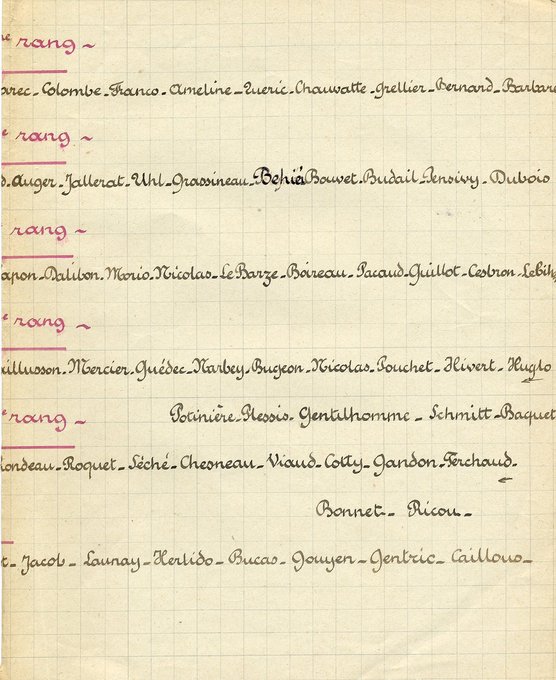 rang
Colombe - Franco - Ameline - Queric - Chauvatte - Grellier - Bernard - Barbare
rang
Auger - Jallerat - Uhl - Grassineau - Bouvet - Budail - Pensivy - Dubois
rang
apon - Dalibon - Morio - Nicolas - Le Barze - Boireau - Pacaud - Guillot - Cesbron - Lebih
e rang
aillusson - Mercier - Guédec - Narbey - Bugeon - Nicolas - Pouchet - Hivert - Huglo
e rang Potinière - Plessis - Gentilhomme - Schmitt - Baquet
ondeau - Roquet - Séché - Chesneau - Viaud - Cotty - Gandon - Ferchaud -
Bonnet - Ricou -
t - Jacob - Launay - Herlido - Bucas - Gouyen - Gentric - Caillous -